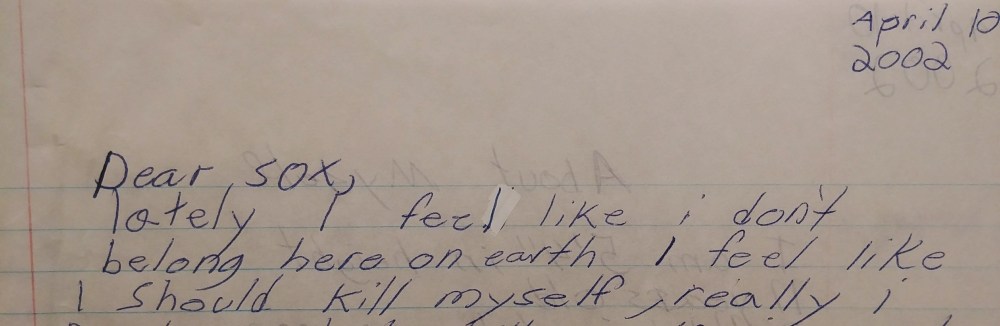 April 10
2002
Dear sox,
lately I feel like i don't
belong here on earth I feel like
I should kill myself, really i